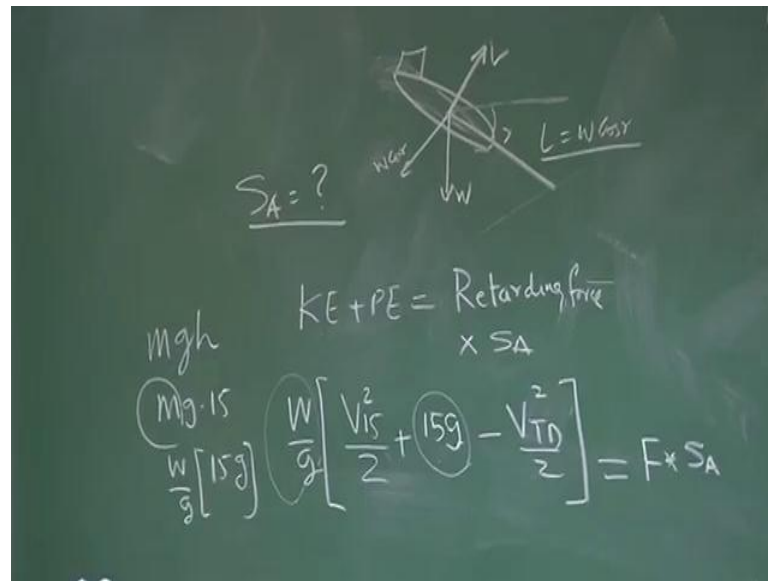 L
W cosγ
γ
L = W cosγ
W
S_A = ?
KE + PE = Retarding force
× S_A
mgh
mg·15
W/g [15g]
W/g [V_15^2/2 + 15g - V_TD^2/2] = F * S_A